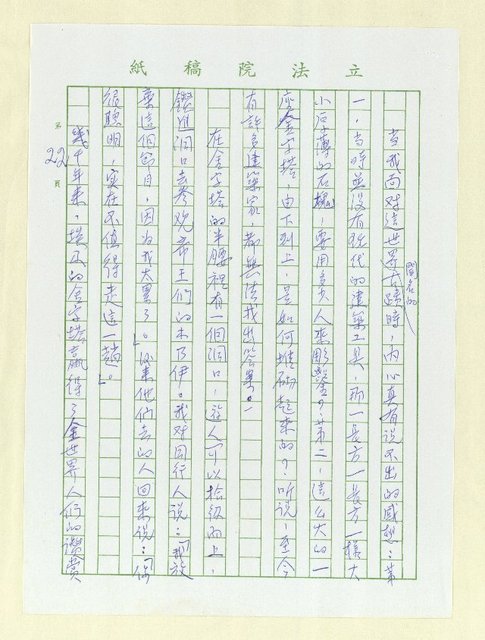 立法院稿紙
當我面對這世界聞名的古蹟時，內心真有說不出的感想：第
一，當時並沒有現代的建築工具，那一長方一長方一樣大
小厚薄的石塊，要用多少人來彫鑿？第二，這么大的一
座金字塔，由下到上，是如何堆砌起來的？听說，至今
有許多建築家，都無法找出答案。
在金字塔的半腰裡有一個洞口，遊人可以拾級而上，
鑽進洞口去參观帝王們的木乃伊。我对同行人說：「我放
棄這個節目，因为我太累了。」后來他們去的人回來說：「你
很聰明，实在不值得走這一趟。」
幾千年來，埃及的金字塔贏得了全世界人们的讚賞
第22頁